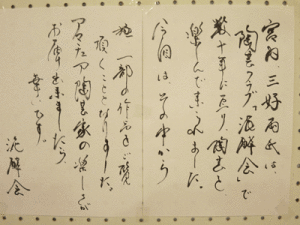 宮内三好両氏は、
陶芸クラブ「泥酔会」で
数十年にわたり、陶芸を
楽しんで来られました。
今回はその中から
極一部の作品をご覧
頂くことになりました。
アマチュア陶芸家の楽しさが
お届け出来ましたら
幸いです。
泥酔会